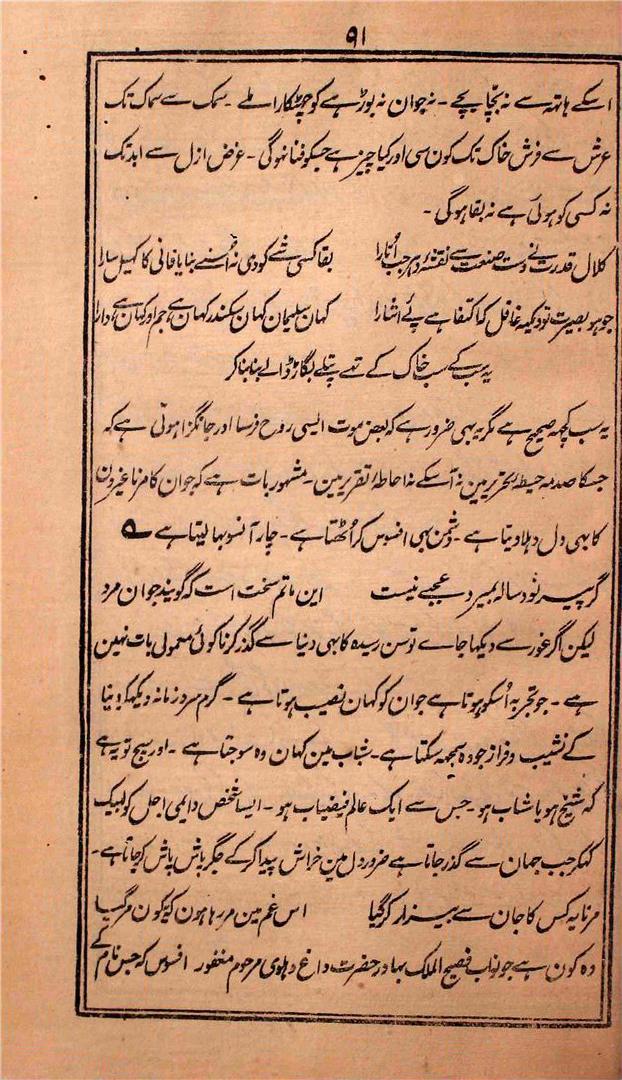 ۹۱
اسکے ہاتہہ سے نہ بچا بچے ۔ نہ جوان نہ بوڑہے کو چہٹکارا ملے ۔ سمک سے سماک تک
عرش سے فرش خاک تک کون سی اور کیا چیز ہے جسکو فنا نہوگی ۔ غرض ازل سے ابد تک
نہ کسی کو ہوئی ہے نہ بقا ہوگی ۔
کلال قدرت نے دست صنعت سے نقشۂ دہر جب اُتارا بقا کسی شے کو دی نہ اُسنے بنایا فانی کا کہیل سارا
جو ہو بصیرت تو دیکہہ غافل کہ اکتفا ہے پئے اشارا کہان سلیمان کہان سکندر کہان ہے جم اور کہان ہے دارا
یہ سب کے سب خاک کے تہے پتلے بگاڑ ڈالے بنا بنا کر
یہ سب کچہہ صحیح ہے مگر یہ بہی ضرور ہے کہ بعض موت ایسی روح فرسا اور جانگزا ہوتی ہے کہ
جسکا صدمہ حیطۂ تحریر مین نہ آسکے نہ احاطۂ تقریر مین ۔ مشہور بات ہے کہ جوان کا مرنا غیرون
کا بہی دل دہلا دیتا ہے ۔ دشمن بہی افسوس کر اُٹہتا ہے ۔ چار آنسو بہا لیتا ہے ؎
گر پیر نود سالہ بمیرد عجبے نیست این ماتم سخت است کہ گویند جوان مرد
لیکن اگر غور سے دیکہا جاے تو سن رسیدہ کا بہی دنیا سے گذر کرنا کوئی معمولی بات نہین
ہے ۔ جو تجربہ اُسکو ہوتا ہے جوان کو کہان نصیب ہوتا ہے ۔ گرم سرد زمانہ دیکہکر دنیا
کے نشیب و فراز جو وہ سمجہہ سکتا ہے ۔ شباب مین کہان وہ سوجتا ہے ۔ اور سچ تو یہ ہے
کہ شیخ ہو یا شاب ہو ۔ جس سے ایک عالم فیضیاب ہو ۔ ایسا شخص داعی اجل کو لبیک
کہکر جب جہان سے گذر جاتا ہے ضرور دل مین خراش پیدا کر کے جگر پاش پاش کر جاتا ہے ۔
مرنا یہ کس کا جان سے بیزار کر گیا اس غم مین مر رہا ہون کہ یہ کون مر گیا
وہ کون ہے جو نواب فصیح الملک بہادر حضرت داغ دہلوی مرحوم مغفور افسوس کہ جس نام کے